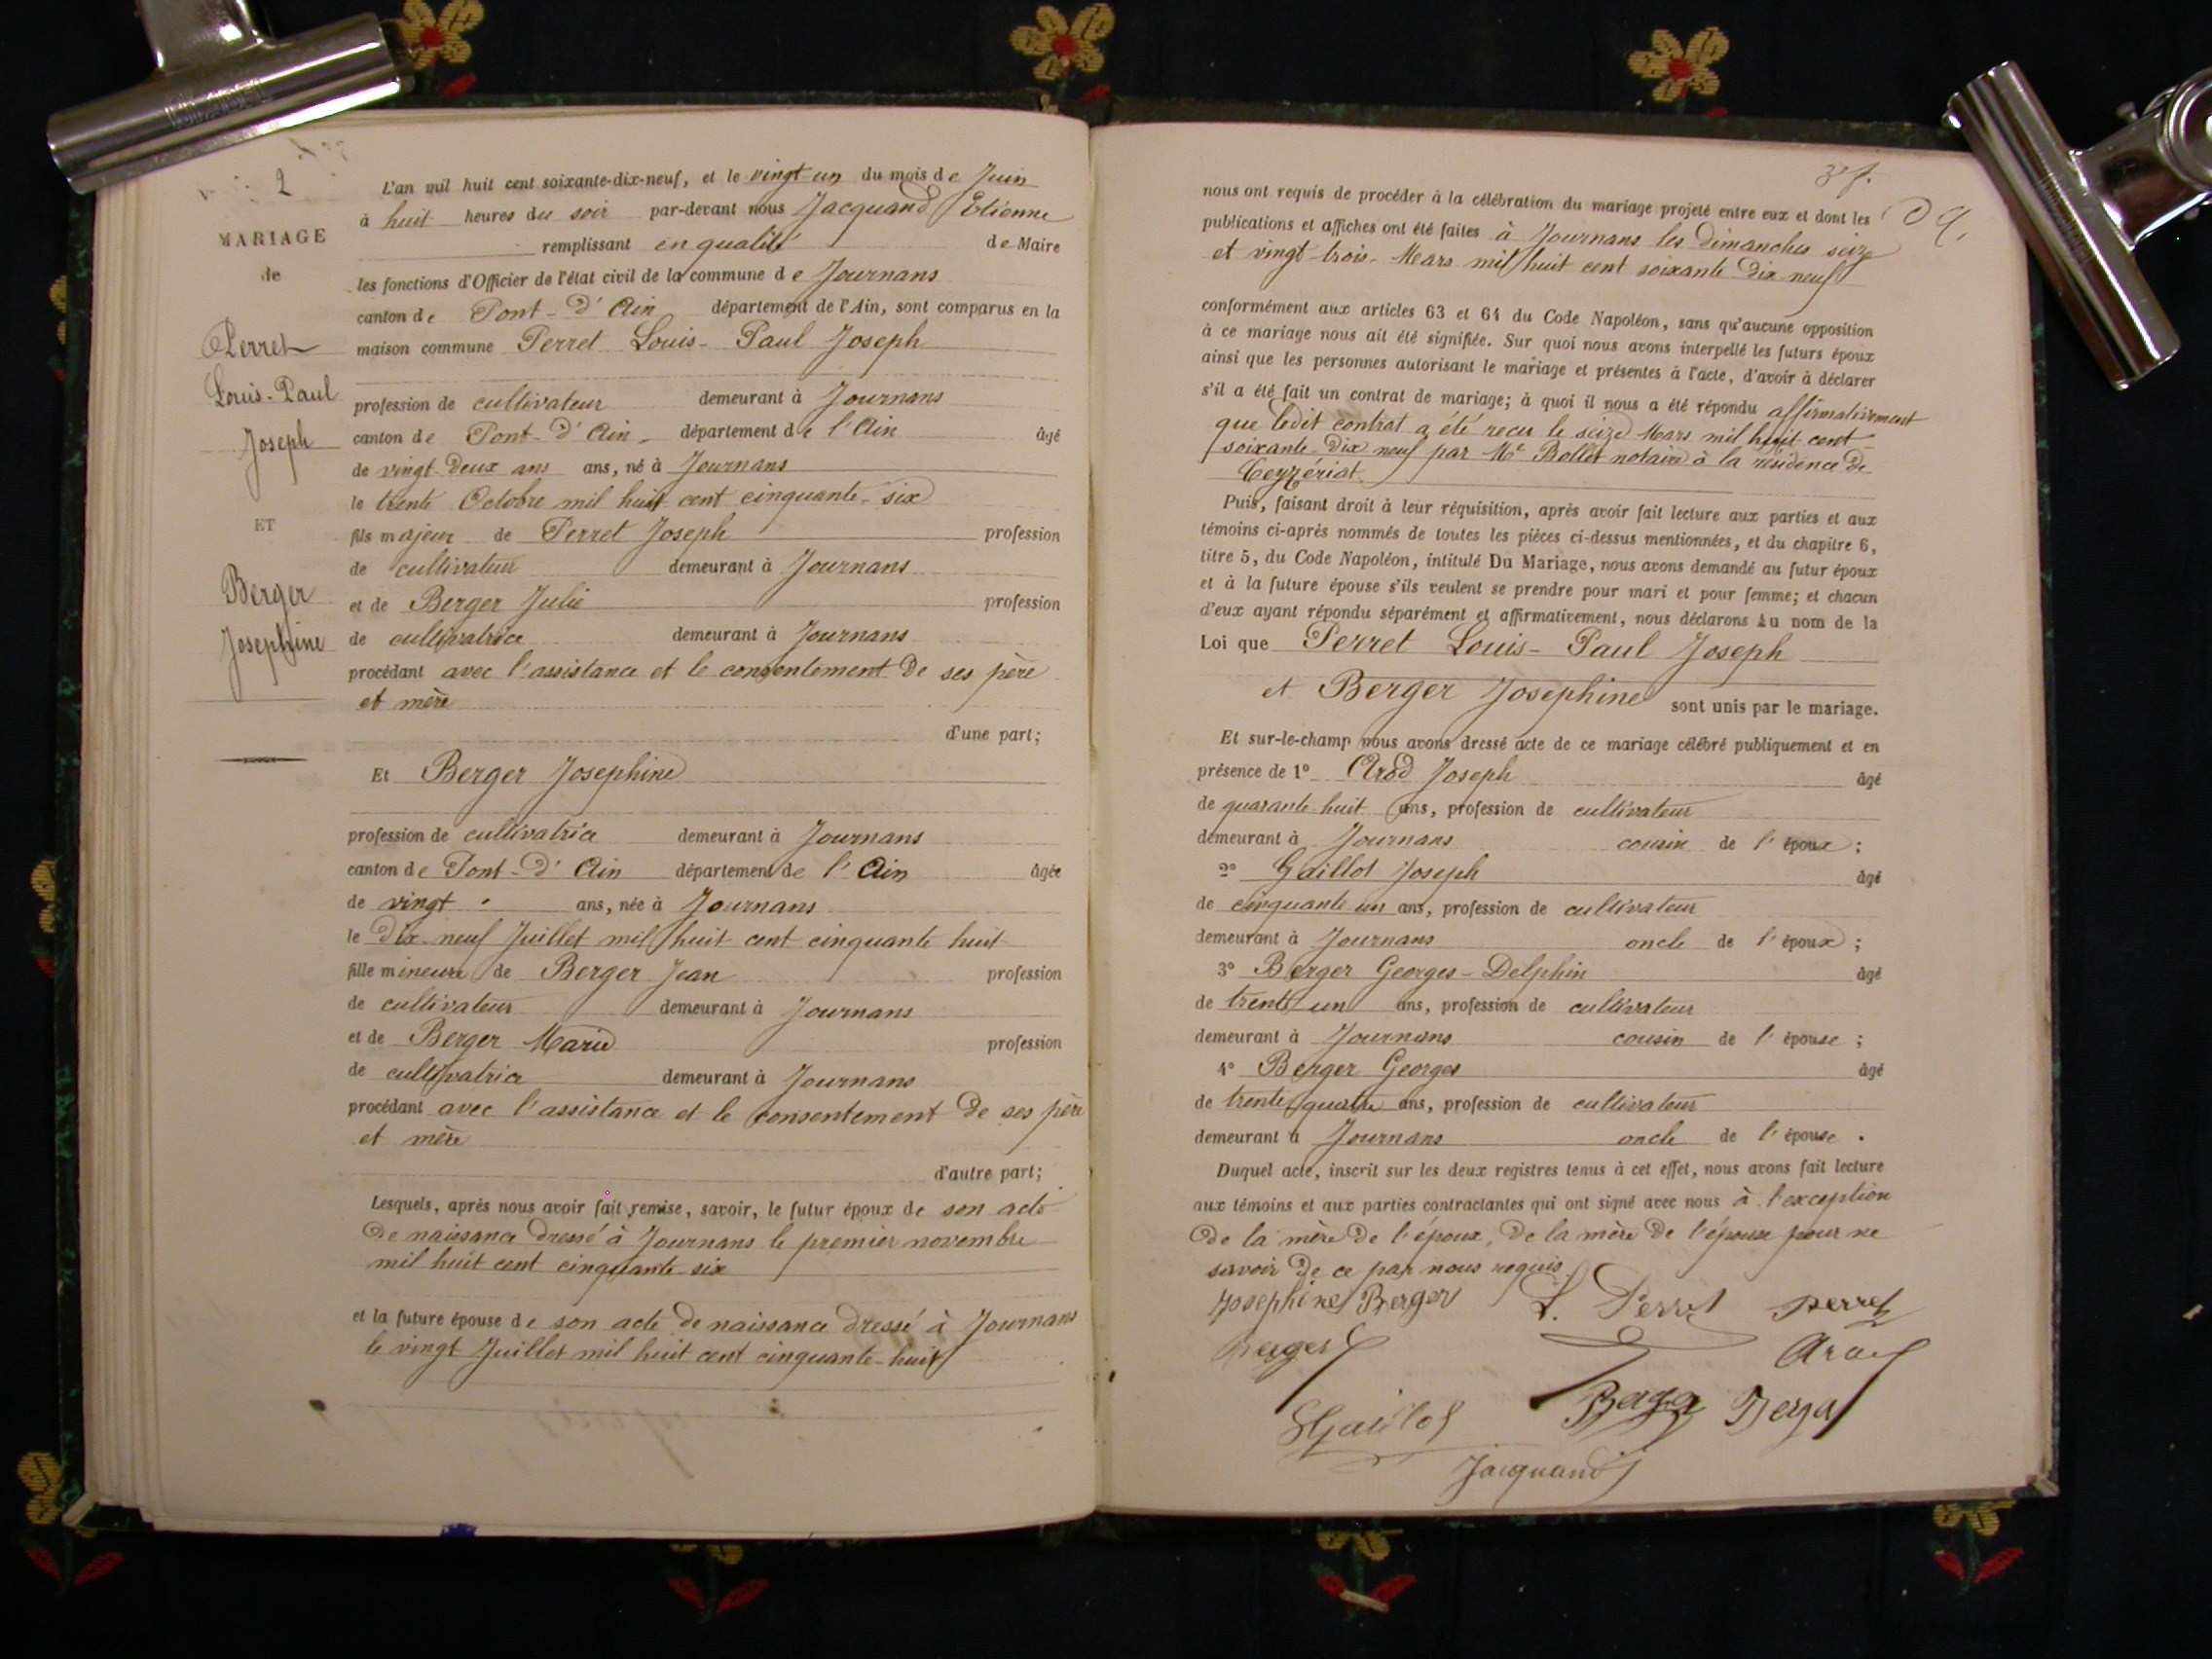 2
MARIAGE
de
Perret
Louis-Paul
Joseph
ET
Berger
Josephine
L'an mil huit cent soixante-dix-neuf, et le vingt-un du mois de Juin
à huit heures du soir par-devant nous Jacquand Etienne
remplissant en qualité de Maire
les fonctions d'Officier de l'état civil de la commune de Journans
canton de Pont-d'Ain département de l'Ain, sont comparus en la
maison commune Perret Louis-Paul Joseph
profession de cultivateur demeurant à Journans
canton de Pont-d'Ain département de l'Ain âgé
de vingt-deux ans ans, né à Journans
le trente Octobre mil huit cent cinquante-six
fils majeur de Perret Joseph profession
de cultivateur demeurant à Journans
et de Berger Julie profession
de cultivatrice demeurant à Journans
procédant avec l'assistance et le consentement de ses père
et mère
d'une part;
Et Berger Josephine
profession de cultivatrice demeurant à Journans
canton de Pont-d'Ain département de l'Ain âgée
de vingt ans, née à Journans
le dix-neuf Juillet mil huit cent cinquante huit
fille mineure de Berger Jean profession
de cultivateur demeurant à Journans
et de Berger Marie profession
de cultivatrice demeurant à Journans
procédant avec l'assistance et le consentement de ses père
et mère
d'autre part;
Lesquels, après nous avoir fait remise, savoir, le futur époux de son acte
de naissance dressé à Journans le premier novembre
mil huit cent cinquante-six
et la future épouse de son acte de naissance dressé à Journans
le vingt Juillet mil huit cent cinquante-huit
nous ont requis de procéder à la célébration du mariage projeté entre eux et dont les
publications et affiches ont été faites à Journans les dimanches seize
et vingt-trois Mars mil huit cent soixante dix-neuf
conformément aux articles 63 et 64 du Code Napoléon, sans qu'aucune opposition
à ce mariage nous ait été signifiée. Sur quoi nous avons interpellé les futurs époux
ainsi que les personnes autorisant le mariage et présentes à l'acte, d'avoir à déclarer
s'il a été fait un contrat de mariage; à quoi il nous a été répondu affirmativement
que ledit contrat a été reçu le seize Mars mil huit cent
soixante-dix neuf par Me Bollet notaire à la résidence de
Ceyzériat.
Puis, faisant droit à leur réquisition, après avoir fait lecture aux parties et aux
témoins ci-après nommés de toutes les pièces ci-dessus mentionnées, et du chapitre 6,
titre 5, du Code Napoléon, intitulé Du Mariage, nous avons demandé au futur époux
et à la future épouse s'ils veulent se prendre pour mari et pour femme; et chacun
d'eux ayant répondu séparément et affirmativement, nous déclarons au nom de la
Loi que Perret Louis-Paul Joseph
et Berger Josephine sont unis par le mariage.
Et sur-le-champ nous avons dressé acte de ce mariage célébré publiquement et en
présence de 1° Arod Joseph âgé
de quarante-huit ans, profession de cultivateur
demeurant à Journans cousin de l'époux;
2° Gaillot Joseph âgé
de cinquante un ans, profession de cultivateur
demeurant à Journans oncle de l'époux;
3° Berger Georges-Delphin âgé
de trente un ans, profession de cultivateur
demeurant à Journans cousin de l'épouse;
4° Berger Georges âgé
de trente-quatre ans, profession de cultivateur
demeurant à Journans oncle de l'épouse.
Duquel acte, inscrit sur les deux registres tenus à cet effet, nous avons fait lecture
aux témoins et aux parties contractantes qui ont signé avec nous à l'exception
de la mère de l'époux, de la mère de l'épouse pour ne
savoir de ce par nous requis.
Josephine Berger L. Perret perret
Berger Arod
Gaillot Berger Berger
Jacquand